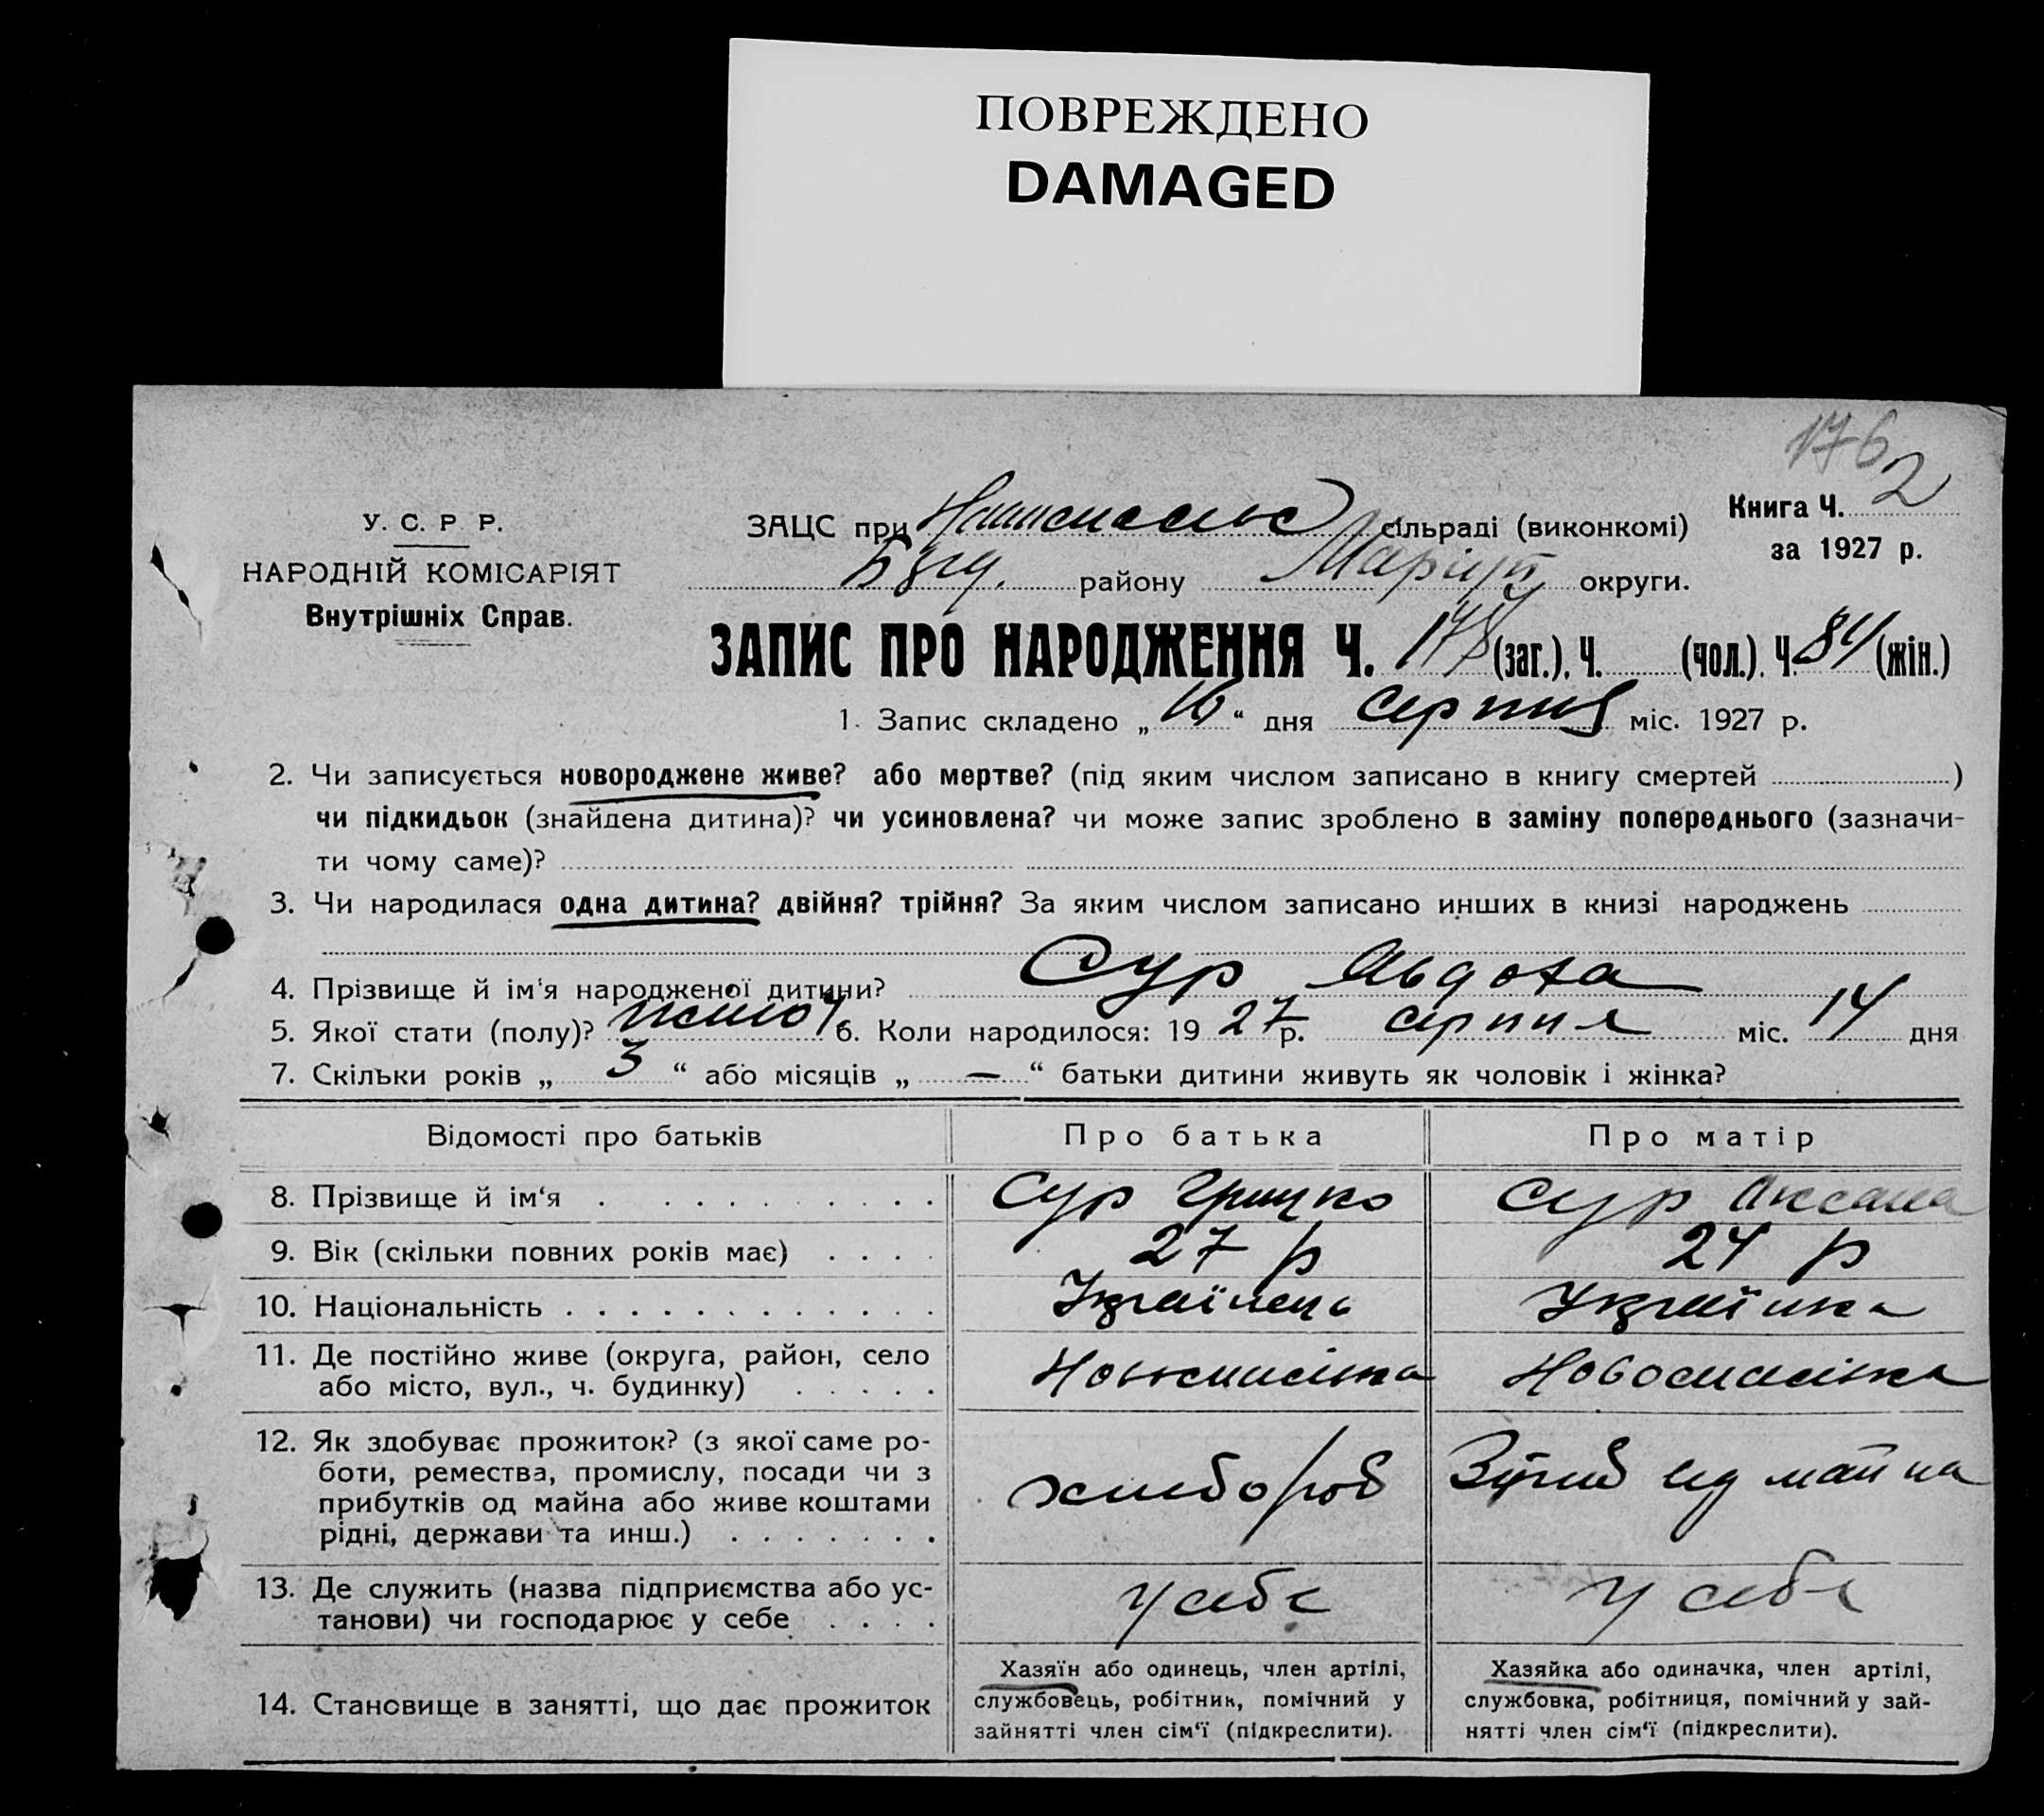 ПОВРЕЖДЕНО
DAMAGED
176
У. С. Р. Р.
НАРОДНІЙ КОМІСАРІЯТ
Внутрішніх Справ.
ЗАЦС при сільраді (виконкомі)
району Маріуп округи.
Книга Ч. 2
за 1927 р.
ЗАПИС ПРО НАРОДЖЕННЯ Ч. 178 (заг.), Ч. (чол.), Ч. 84 (жін.)
1. Запис складено „16“ дня серпня міс. 1927 р.
2. Чи записується новороджене живе? або мертве? (під яким числом записано в книгу смертей )
чи підкидьок (знайдена дитина)? чи усиновлена? чи може запис зроблено в заміну попереднього (зазначи-
ти чому саме)?
3. Чи народилася одна дитина? двійня? трійня? За яким числом записано инших в книзі народжень
4. Прізвище й ім'я народженої дитини? Сур Явдоха
5. Якої стати (полу)? жіноч. 6. Коли народилося: 1927 р. серпня міс. 14 дня
7. Скільки років „ 3 “ або місяців „ — “ батьки дитини живуть як чоловік і жінка?
Відомості про батьків Про батька Про матір
8. Прізвище й ім‘я Сур Грицко Сур Аксана
9. Вік (скільки повних років має) 27 р 24 р
10. Національність Українець Українка
11. Де постійно живе (округа, район, село
або місто, вул., ч. будинку) Новоспасівка Новоспасівка
12. Як здобуває прожиток? (з якої саме ро-
боти, ремества, промислу, посади чи з
прибутків од майна або живе коштами
рідні, держави та инш.) хлибороб від майна
13. Де служить (назва підприємства або ус-
танови) чи господарює у себе у себе у себе
14. Становище в занятті, що дає прожиток
Хазяїн або одинець, член артілі,
службовець, робітник, помічний у
зайнятті член сім‘ї (підкреслити).
Хазяйка або одиначка, член артілі,
службовка, робітниця, помічний у зай-
нятті член сім‘ї (підкреслити).